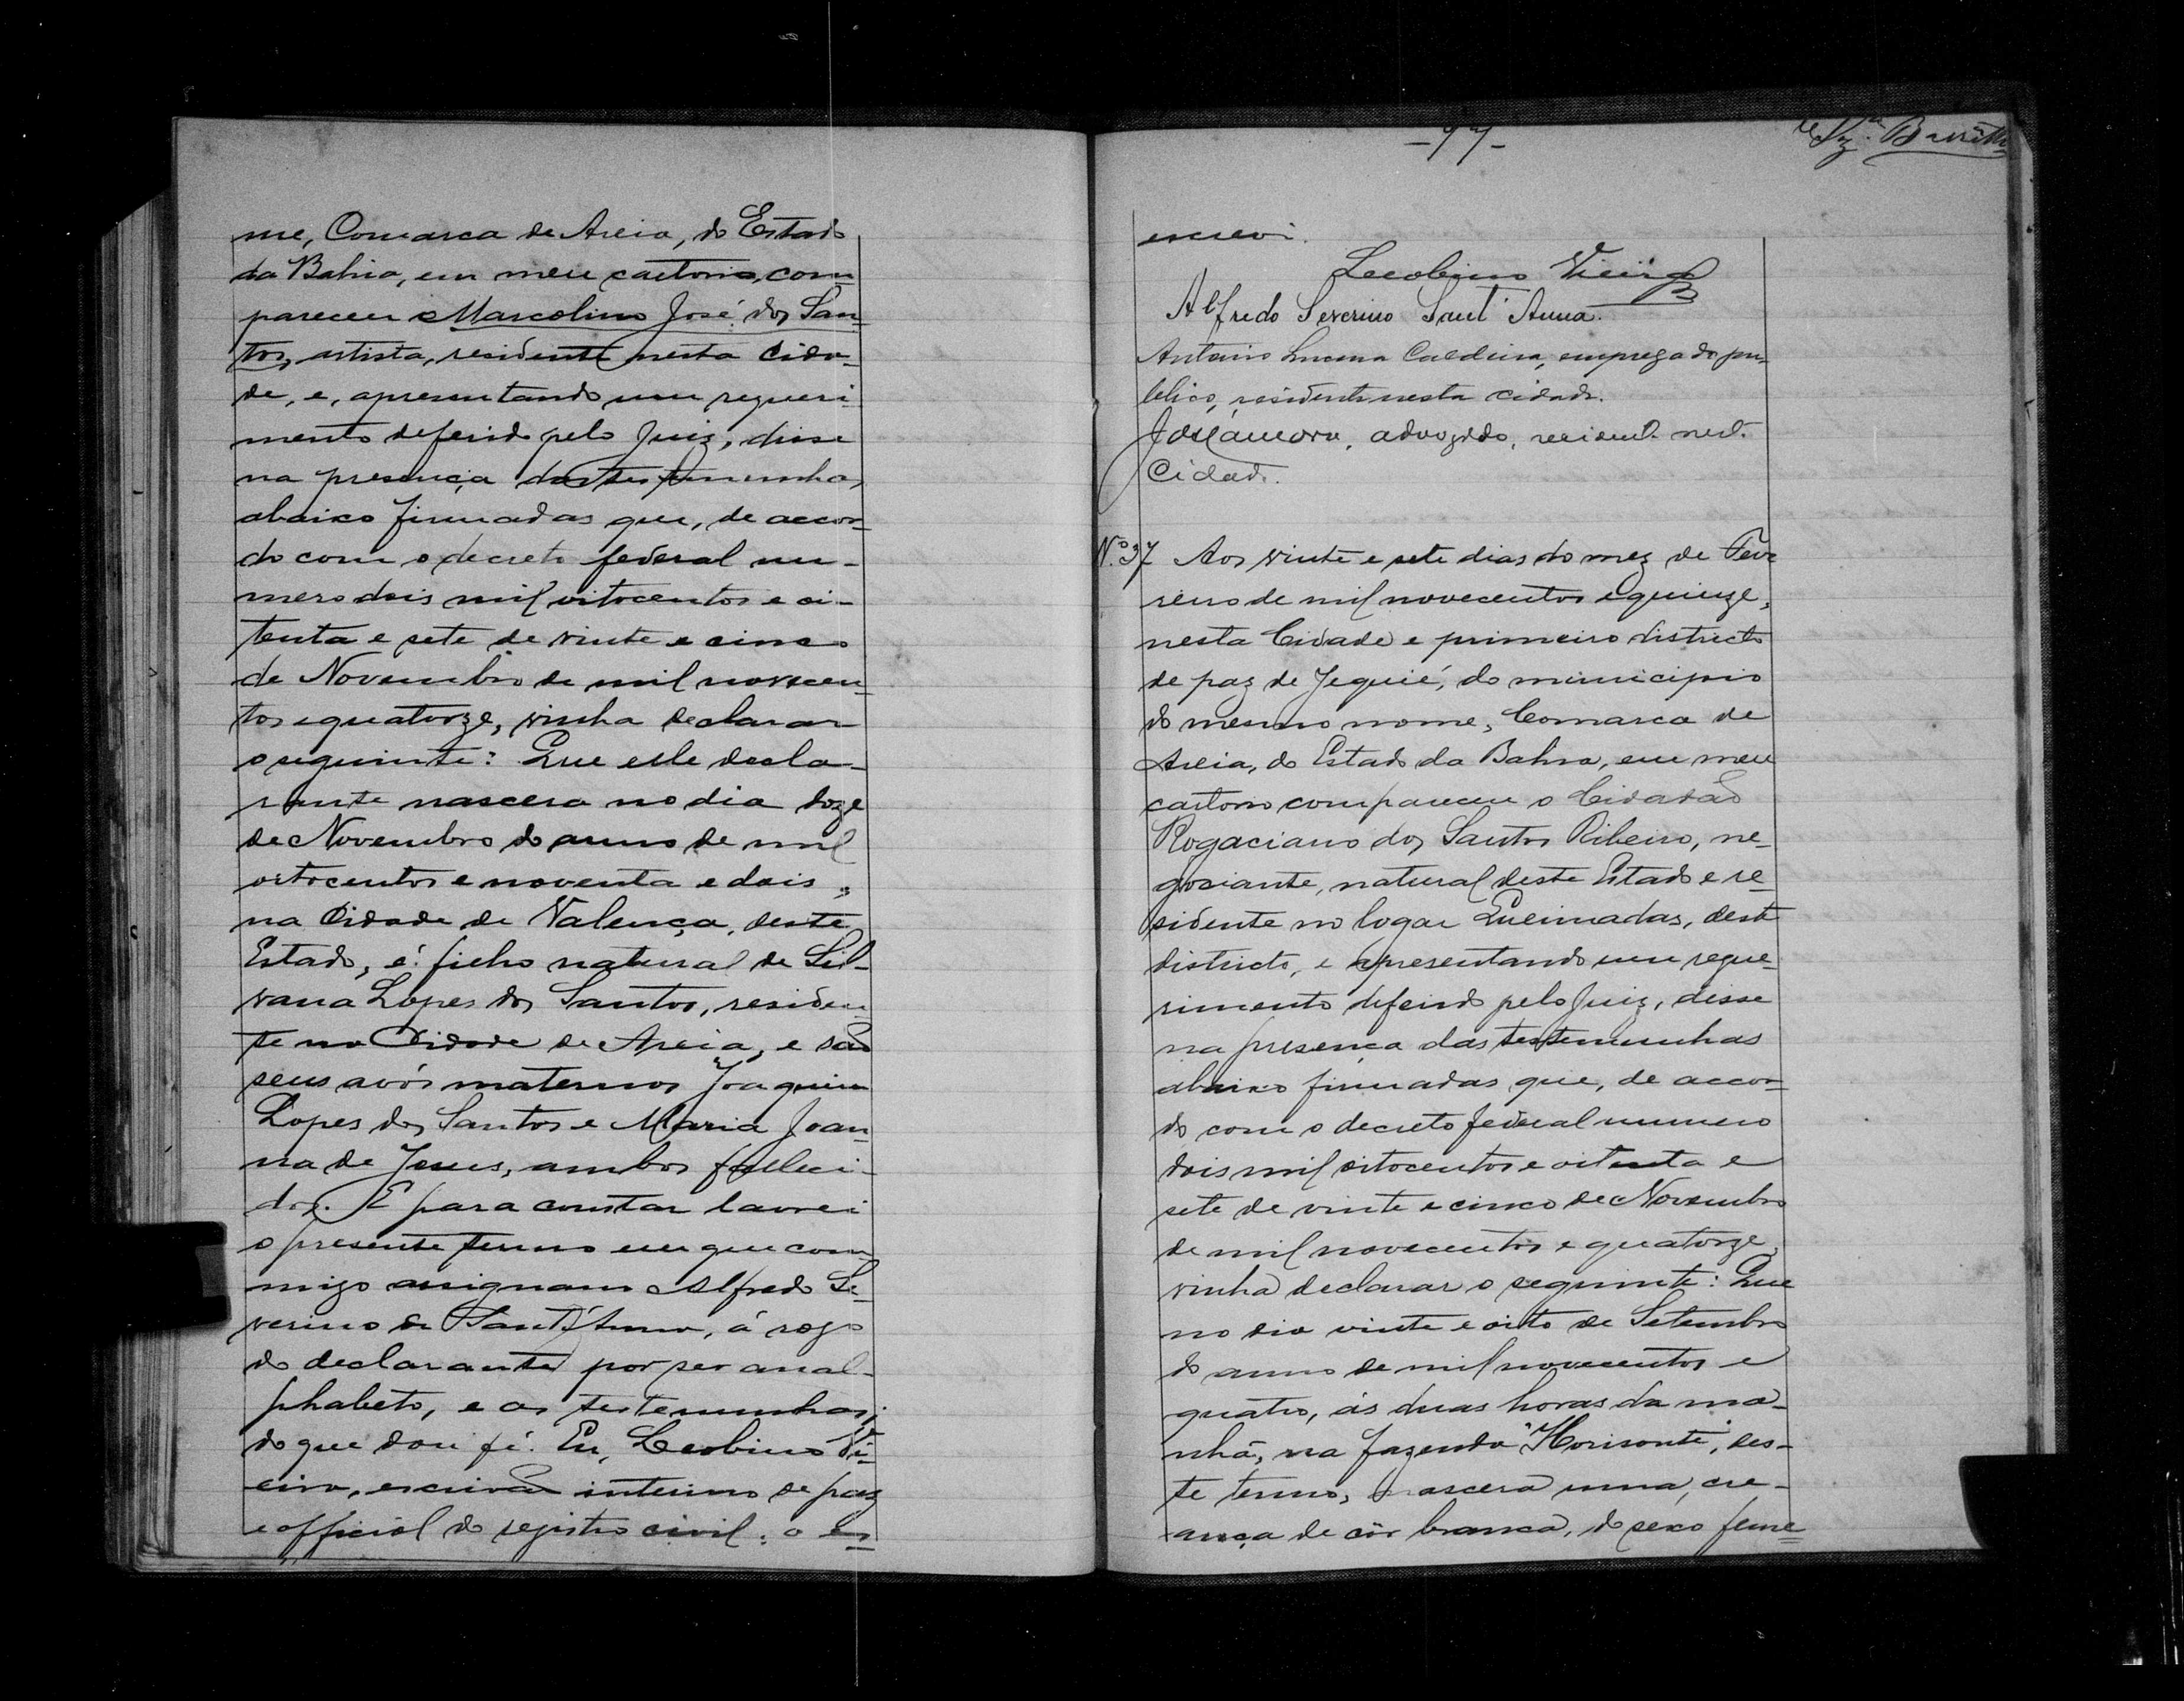 me, Comarca de Areia, do Estado
da Bahia, em meu cartorio, com-
pareceu Marcolino José dos San-
tos, artista, residente nesta Cida-
de, e, apresentando um requeri-
mento deferido pelo Juiz, disse
na presença das testemunhas
abaixo firmadas que, de accor-
do com o decreto federal nu-
mero dois mil oitocentos e oi-
tenta e sete de vinte e cinco
de Novembro de mil novecen-
tos e quatorze, vinha declarar
o seguinte: Que elle decla-
rante nascera no dia doze
de Novembro do anno de mil
oitocentos e noventa e dois,
na Cidade de Valença, deste
Estado, é filho natural de Sil-
vana Lopes dos Santos, residen-
te na Cidade de Areia, e são
seus avós maternos Joaquim
Lopes dos Santos e Maria Joan-
na de Jesus, ambos falleci-
dos. E para constar lavrei
o presente termo em que com-
migo assignam Alfredo Se-
verino de Sant'Anna, á rogo
do declarante por ser anal-
phabeto, e as testemunhas;
do que dou fé. Eu, Leobino Vi-
eira, escrivão interino de paz
e official do registro civil: o es-
97
Barretto
escrevi.
Leobino Vieira
Alfredo Severino Sant'Anna.
Antonio Lucena Caldeira, empregado pu-
blico, residente nesta cidade.
advogado, resident. nest.
Cidad.
N.º 37 Aos vinte e sete dias do mez de Feve
reiro de mil novecentos e quinze,
nesta Cidade e primeiro districto
de paz de Jequié, do municipio
do mesmo nome, Comarca de
Areia, do Estado da Bahia, em meu
cartorio compareceu o Cidadão
Rogaciano dos Santos Ribeiro, ne-
gosiante, natural deste Estado e re-
sidente no logar Queimadas, deste
districto, e apresentando um reque-
rimento deferido pelo Juiz, disse
na presença das testemunhas
abaixo firmadas que, de accor-
do com o decreto federal numero
dois mil oitocentos e oitenta e
sete de vinte e cinco de Novembro
de mil novecentos e quatorze,
vinha declarar o seguinte: Que
no dia vinte e oito de Setembro
do anno de mil novecentos e
quatro, ás duas horas da ma-
nhã, na fazenda "Horisonte", des-
te termo, nascera uma, cre-
ança de côr branca, do sexo feme